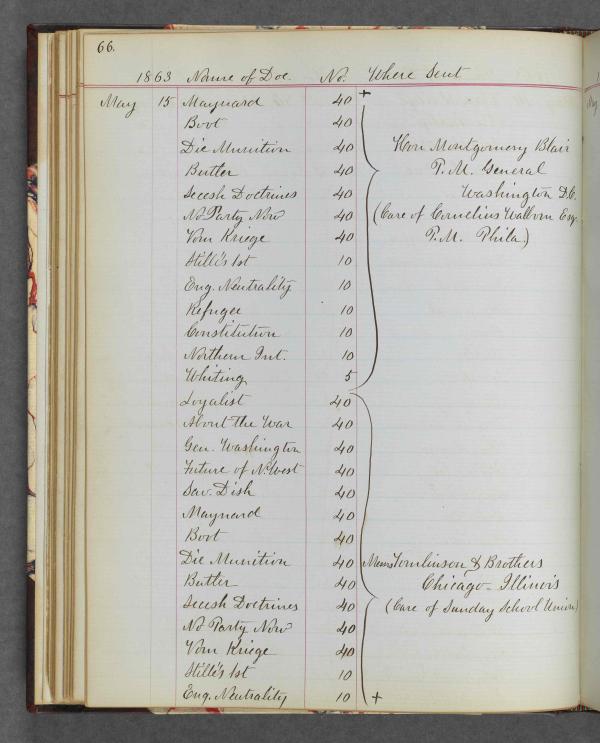 66.
1863 Name of Doc. No. Where Sent
May 15 Maynard 40 +
Boot 40
Die Munition 40 Hon Montgomery Blair
Butler 40 P.M. General
Secesh Doctrines 40 Washington D.C.
No Party Now 40 (Care of Cornelius Walborn Esq.
Vom Kriege 40 P.M. Phila.)
Stillé's 1st 10
Eng. Neutrality 10
Refugee 10
Constitution 10
Northern Int. 10
Whiting 5
Loyalist 40
About the War 40
Gen. Washington 40
Future of N.West 40
Sav. Dish 40
Maynard 40
Boot 40
Die Munition 40 Messrs Tomlinson & Brothers
Butler 40 Chicago - Illinois
Secesh Doctrines 40 (Care of Sunday School Union)
No Party Now 40
Vom Kriege 40
Stillé's 1st 10
Eng. Neutrality 10 +